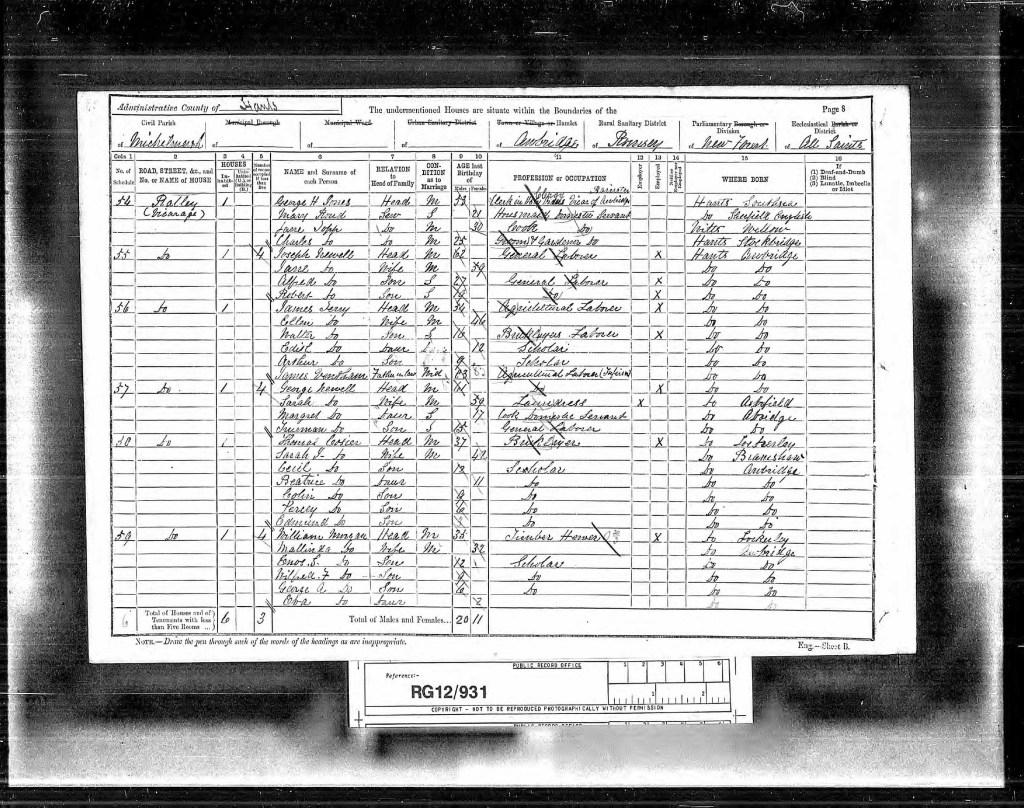 Administrative County of Hants
The undermentioned Houses are situate within the Boundaries of the
Page 8
Civil Parish
Municipal Borough
Municipal Ward
Urban Sanitary District
Town or Village or Hamlet
Rural Sanitary District
Parliamentary Borough or Division
Ecclesiastical Parish or District
of Michelmersh of of of Awbridge of Romsey of New Forest of All Saints
Cols 1 2 3 4 5 6 7 8 9 10 11 12 13 14 15 16
No. of Schedule
ROAD, STREET, &c., and No. or NAME of HOUSE
HOUSES
NAME and Surname of each Person
RELATION to Head of Family
CONDITION as to Marriage
AGE last Birthday of
Males Females
PROFESSION or OCCUPATION
Employer
Employed
WHERE BORN
(1) Deaf-and-Dumb
(2) Blind
(3) Lunatic, Imbecile or Idiot
54 Ratley 1 George H Jones Head M 53 Clerk in Holy Orders Vicar of Awbridge Hants Southsea
(Vicarage) Mary S 21 Housmaid Domestic Servant Do
Jane Topp Do M 30 Cook Do Wilts Wellow
Charles Do Do M 25 Groom & Gardener Do Hants Stockbridge
55 Do 1 4 Joseph Newell Head M 62 General Laborer X Hants Awbridge
Jane Do Wife M 59 Do Do
Alfred Do Son S 27 General Laborer X Do Do
Robert Do Son S Do X Do Do
56 Do 1 James Head M 54 Agricultural Laborer X Do Do
Ellen Do Wife M 46 Do Do
Walter Do Son S 16 Bricklayers Laborer X Do Do
Edith Do Daur 12 Scholar Do Do
Arthur Do Son 9 Scholar Do Do
James Father in law Wid 83 Agricultural Laborer Do Do
57 Do 1 4 George Newell Head M Do X Do Do
Sarah Do Wife M 59 Laundress X Do Ashfield
Margret Do Daur S 17 Cook Domestic Servant Do
Truman Do Son S 15 General Laborer Do Do
58 Do 1 Thomas Head M 37 Bricklayer X Do
Sarah J Do Wife M Do Bramshaw
Cecil Do Son 12 Scholar Do Awbridge
Beatrice Do Daur 11 Do Do Do
Colin Do Son 9 Do Do Do
Percy Do Son 6 Do Do Do
Edmund Do Son Do Do Do
59 Do 1 4 William Morgan Head M 35 Timber Hewer X Do Lockerley
Mallinda Do Wife M 32 Do Awbridge
Enos S. Do Son 12 Scholar Do Do
Wilfred F Do Son 9 Do Do Do
George A Do Son 6 Do Do Do
Eva Do Daur 2 Do Do
6 Total of Houses and of Tenements with less than Five Rooms ... 6 3 Total of Males and Females... 20 11
NOTE.—Draw the pen through such of the words of the headings as are inappropriate.
Eng.—Sheet B.
PUBLIC RECORD OFFICE
Reference:-
RG12/931
COPYRIGHT - NOT TO BE REPRODUCED PHOTOGRAPHICALLY WITHOUT PERMISSION
1 2 3 4 5 6
1 2
PUBLIC RECORD OFFICE